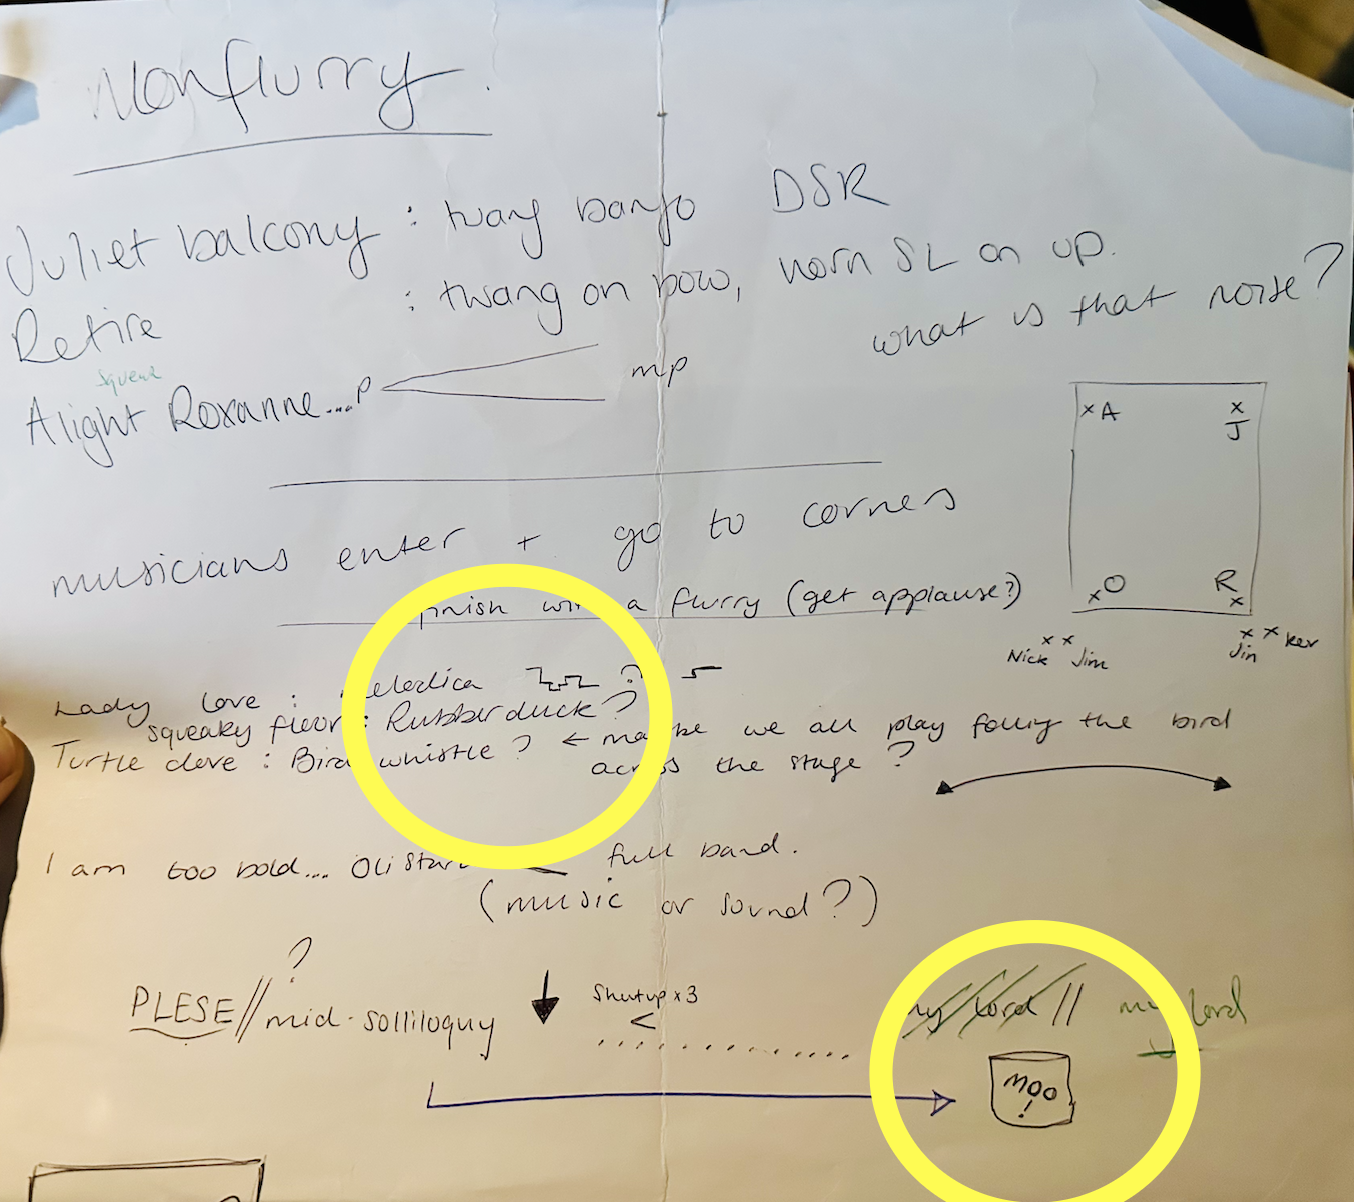 Nonflurry.
Juliet balcony : twang banjo DSR
Retire : twang on bow, horn SL on up.
what is that noise?
squeak
Alight Roxanne....p mp
x A x J
musicians enter + go to corners
finish with a flurry (get applause?)
x O R x
x x x x Kev
Nick Jim Jin
Lady Love : Melodica ?
squeaky floor : Rubber duck?
Turtle dove : Bird whistle? ← maybe we all play follig the bird
across the stage?
I am too bold.... Oli start full band.
(music or sound?)
?
PLESE//mid-solliloquy Shutup x3 my Lord // my Lord
<
MOO
!